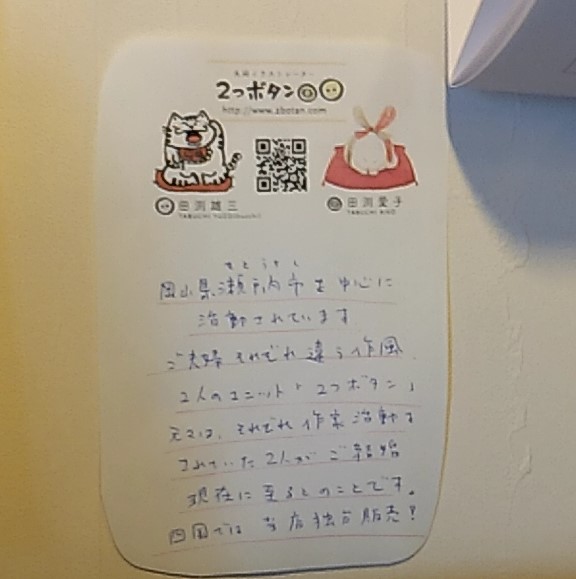 夫婦イラストレーター
2つボタン
http://www.2botan.com
田渕雄三
田渕愛子
せとうちし
岡山県瀬戸内市を中心に
活動されています
ご夫婦それぞれ違う作風
2人のユニット「2つボタン」
元々は、それぞれ作家活動を
されていた2人がご結婚
現在に至るとのことです。
四国では当店独占販売!